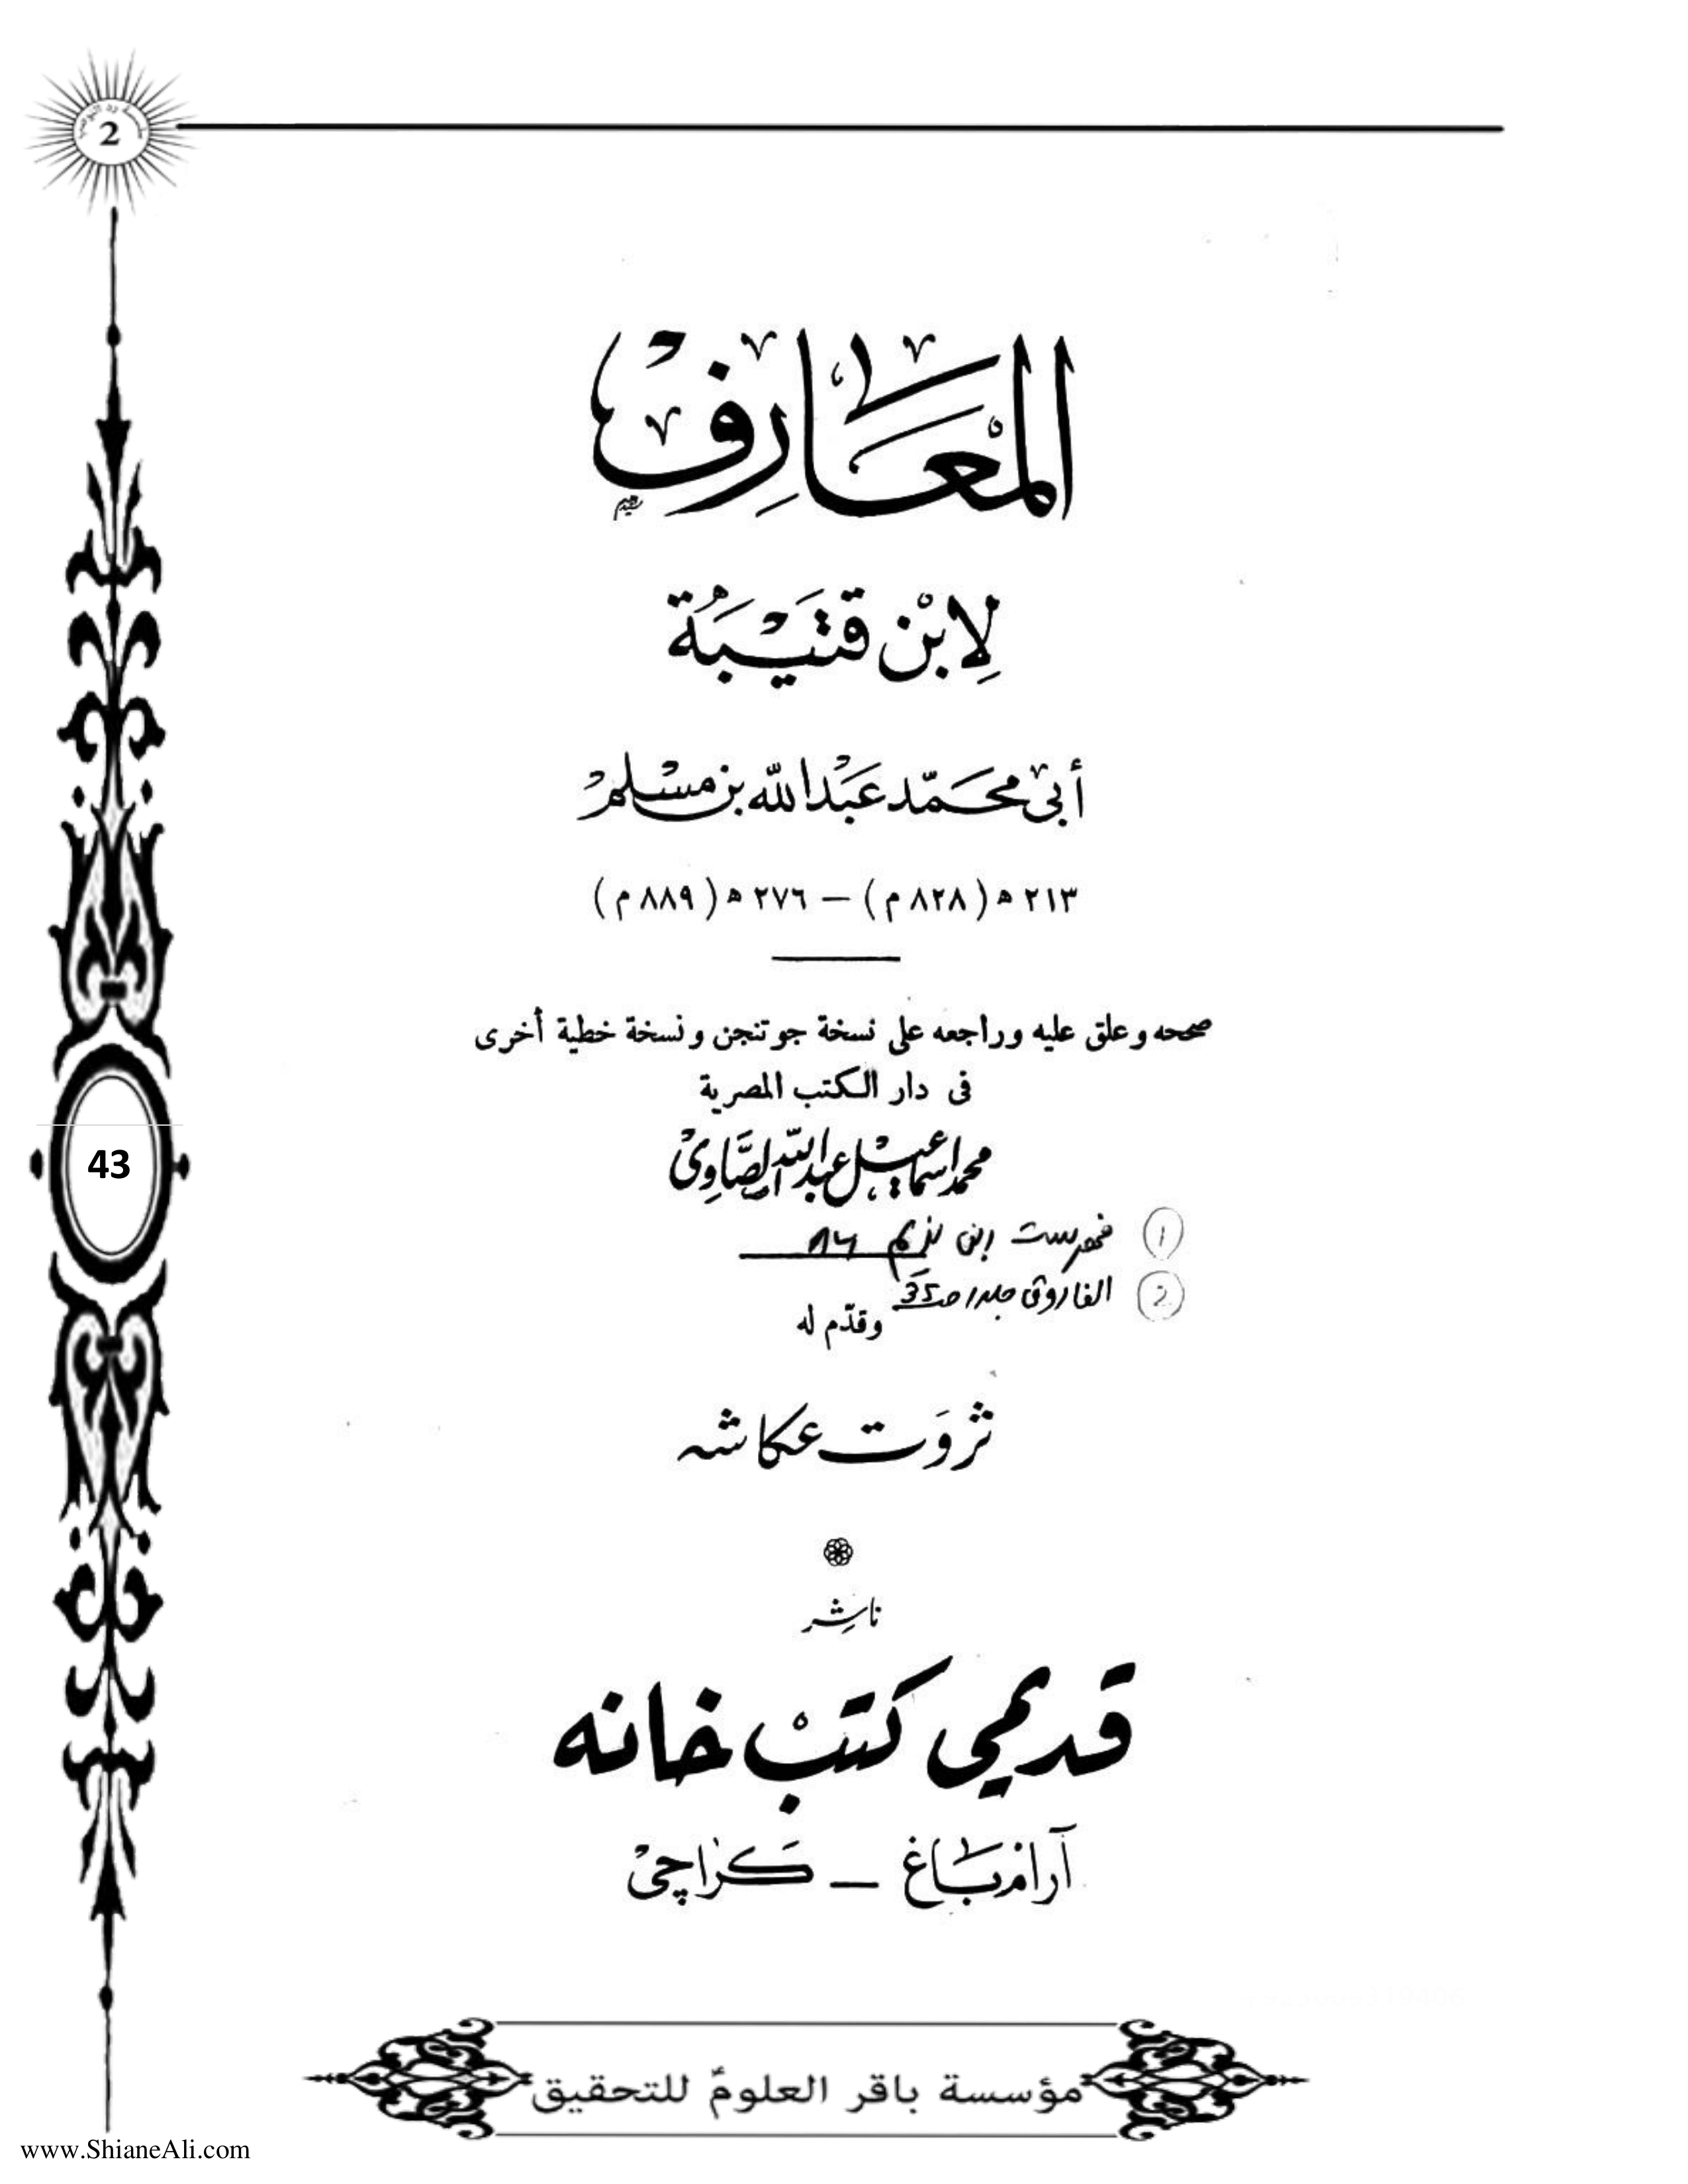 2
المعارف
لابن قتيبة
أبي محمد عبد الله بن مسلم
٢١٣ ه (٨٢٨ م) – ٢٧٦ ه (٨٨٩ م)
صححه وعلق عليه وراجعه على نسخة جوتنجن ونسخة خطية أخرى
فى دار الكتب المصرية
محمد اسماعيل عبد الله الصاوى
① فهرست ابن ندیم ٨٦
② الفاروق جلد ١ ص 35
وقدّم له
ثروت عكاشه
ناشر
قديمي كتب خانه
آرام باغ – كراچى
43
مؤسسة باقر العلومؑ للتحقيق
www.ShianeAli.com